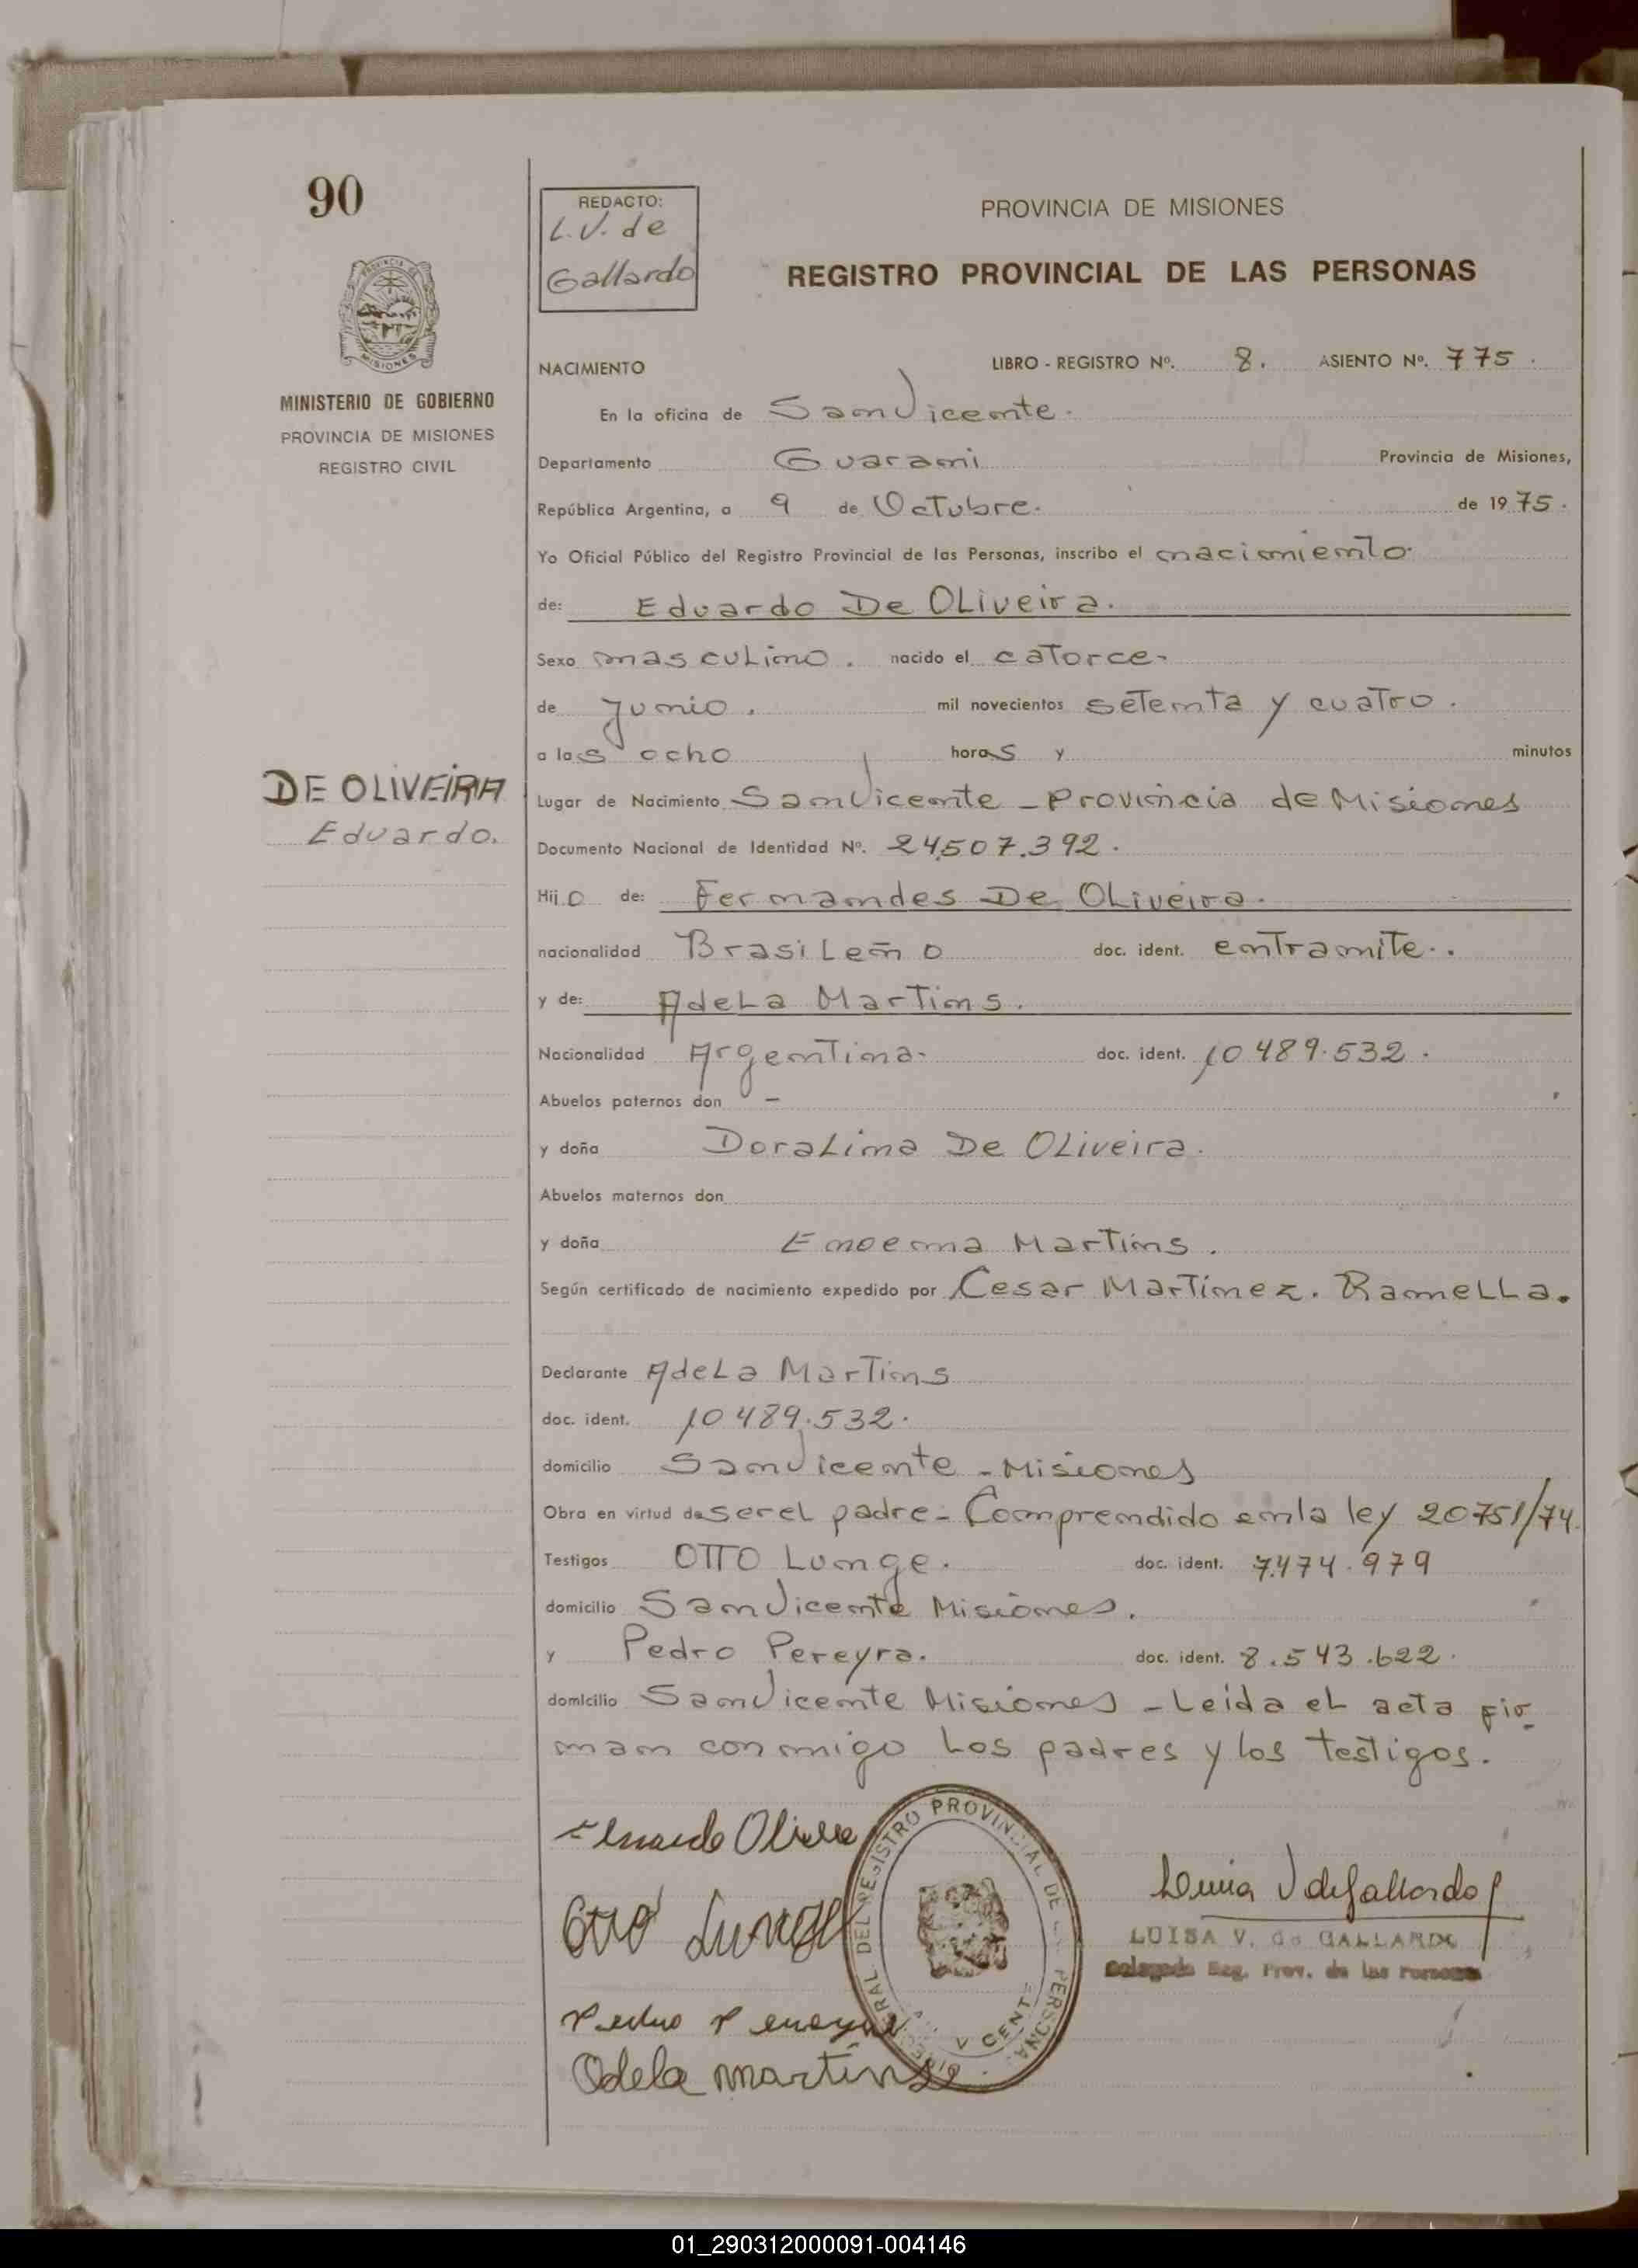 90
REDACTO:
L.V. de
Gallardo
PROVINCIA DE MISIONES
REGISTRO PROVINCIAL DE LAS PERSONAS
PROVINCIA DE
MISIONES
MINISTERIO DE GOBIERNO
PROVINCIA DE MISIONES
REGISTRO CIVIL
NACIMIENTO LIBRO - REGISTRO Nº. 8. ASIENTO Nº. 775.
En la oficina de San Vicente.
Departamento Guarani Provincia de Misiones,
República Argentina, a 9 de Octubre. de 1975.
Yo Oficial Público del Registro Provincial de las Personas, inscribo el nacimiento
de: Eduardo De Oliveira.
Sexo masculino. nacido el catorce-
de Junio. mil novecientos setenta y cuatro.
a las ocho horas y minutos
DE OLIVEIRA
Eduardo.
Lugar de Nacimiento San Vicente - Provincia de Misiones
Documento Nacional de Identidad Nº. 24.507.392.
Hijo de: Fernandes De Oliveira.
nacionalidad Brasileño doc. ident. entramite..
y de: Adela Martins.
Nacionalidad Argentina. doc. ident. 10489.532.
Abuelos paternos don -
y doña Doralina De Oliveira.
Abuelos maternos don
y doña Enoema Martins.
Según certificado de nacimiento expedido por Cesar Martinez. Ramella.
Declarante Adela Martins
doc. ident. 10489.532.
domicilio San Vicente - Misiones
Obra en virtud de ser el padre - Comprendido en la ley 20751/74.
Testigos OTTO Lunge. doc. ident. 7.474.979
domicilio San Vicente Misiones.
y Pedro Pereyra. doc. ident. 8.543.622.
domicilio San Vicente Misiones - Leida el acta fir-
man conmigo los padres y los testigos.
Otto Lunge
Adela martins
Luisa V de Gallardo
LUISA V. de GALLARDO
Delegada Reg. Prov. de las Personas
REGISTRO PROVINCIAL DE PERSONA
01_290312000091-004146